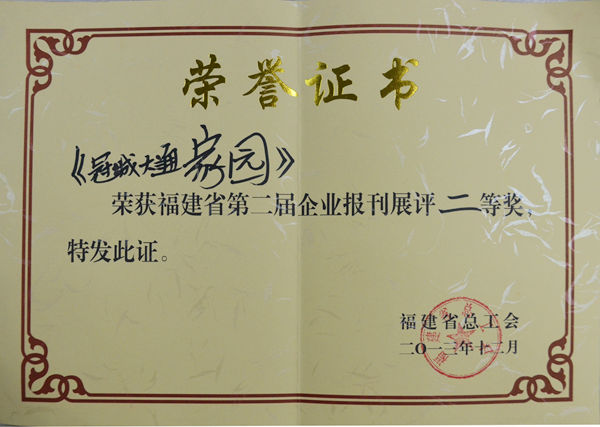 荣誉证书
《冠城大通家园》
荣获福建省第二届企业报刊展评二等奖，
特发此证。
福建省总工会
二〇一三年十二月